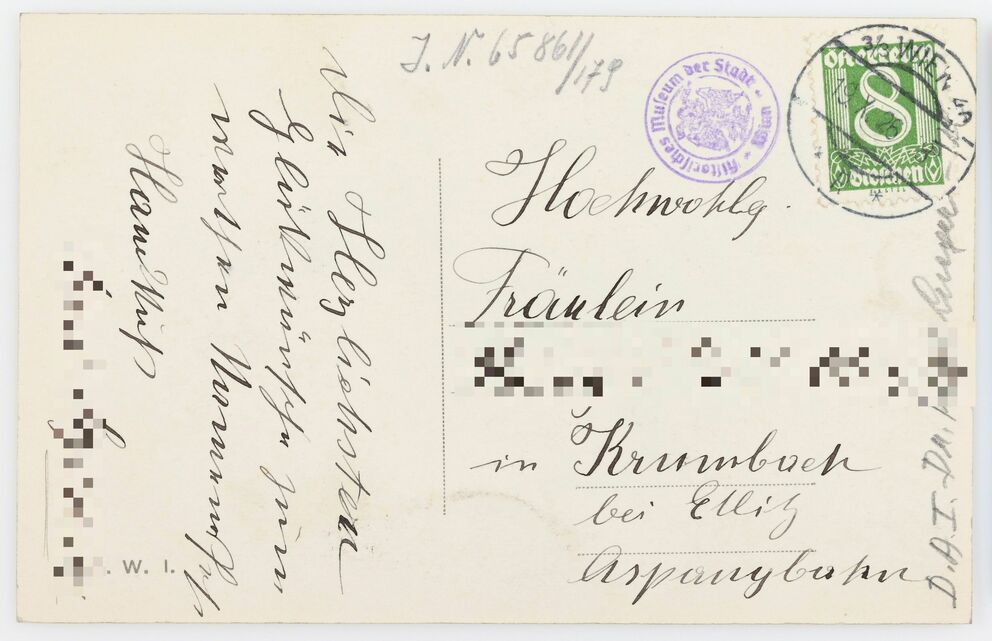 J. N. 65861/179
Historisches Museum der Stadt Wien
Österreich
8
Groschen
WIEN
Die Herzlichsten
Glückwünsche zum
werthen Namensfest
Hochwohlg.
Fräulein
in Krumbach
bei Edlitz
Aspangbahn
W. I.
D. A. I.